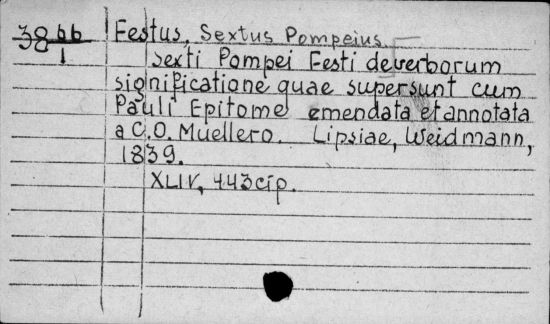 38 bb Festus, Sextus Pompeius.
1 Sexti Pompei Festi de verborum
significatione quae supersunt cum
Pauli Epitome emendata et annotata
a C. O. Muellero. Lipsiae, Weidmann,
1839.
XLIV, 443 cip.